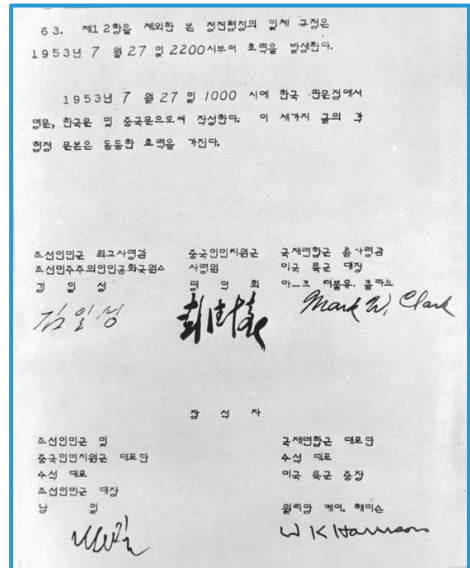 63. 제12항을 제외한 본 정전협정의 일체 규정은
1953년 7 월 27 일 2200시부터 효력을 발생한다.
1953년 7 월 27 일 1000 시에 한국 판문점에서
영문, 한국문 및 중국문으로써 작성한다. 이 세가지 글의 각
협정 문본은 동등한 효력을 가진다.
조선인민군 최고사령관
조선민주주의인민공화국원수
김 일 성
김일성
중국인민지원군
사령원
펑 덕 회
彭德懷
국제련합군 총사령관
미국 륙군 대장
마-크 더블유. 클라크
Mark W. Clark
참 석 자
조선인민군 및
중국인민지원군 대표단
수석 대표
조선인민군 대장
남 일
남일
국제련합군 대표단
수석 대표
미국 륙군 중장
윌리암 케이. 해리슨
W K Harrison